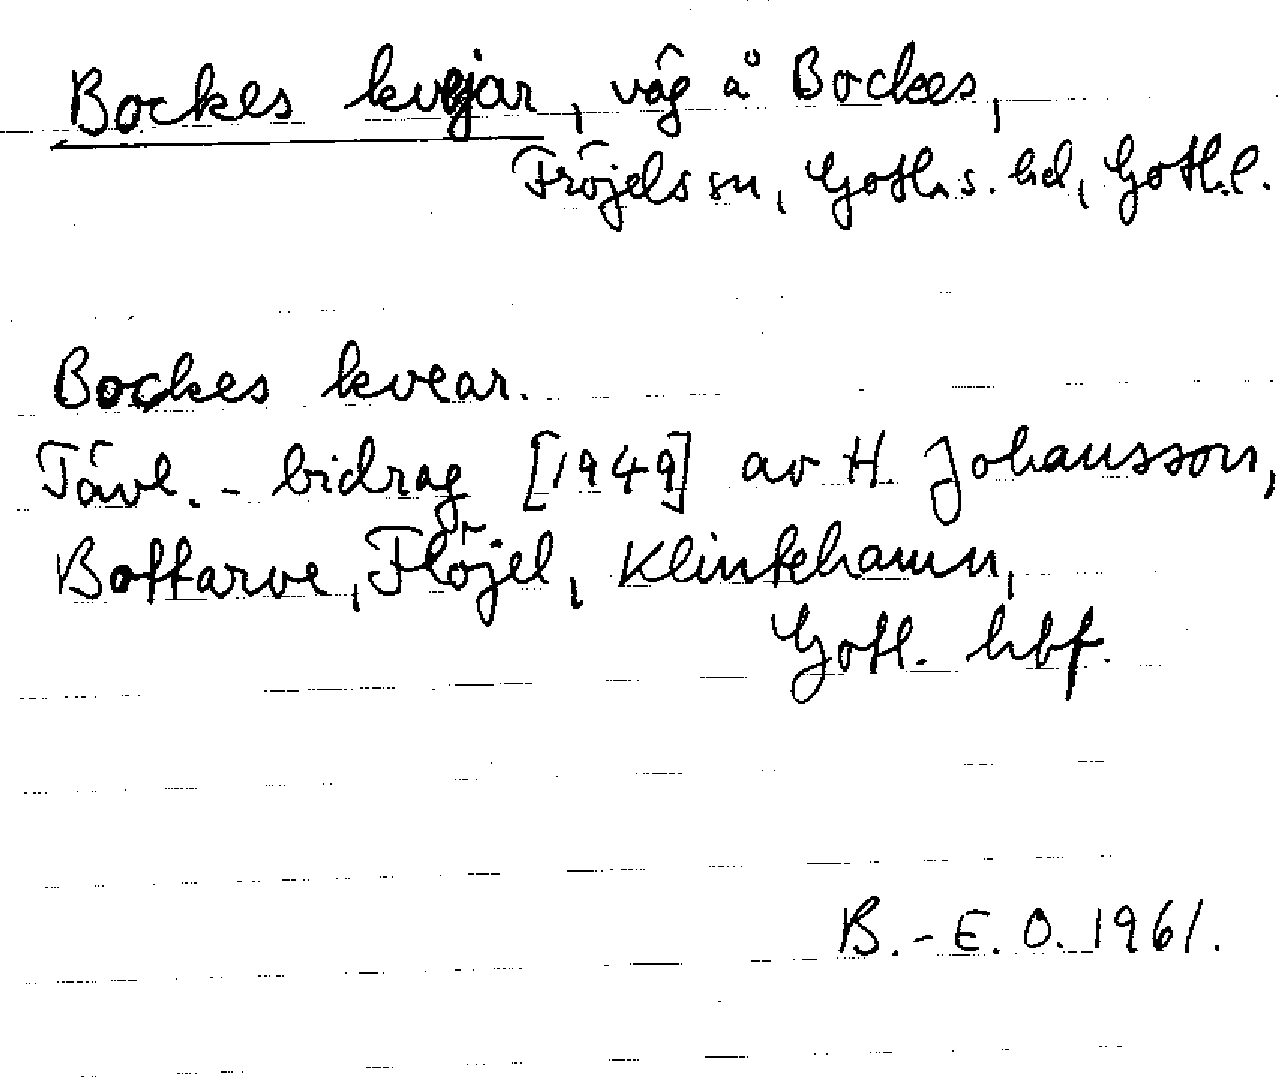 Bockes kvejar, väg å Bockes,
Fröjels sn, Gotlds. hd, Gotl.l.
Bockes kvear.
Tävl.-bidrag [1949] av H. Johansson,
Bottarve, Fröjel, Klintehamn,
Gotl. hbf.
B.-E. O. 1961.